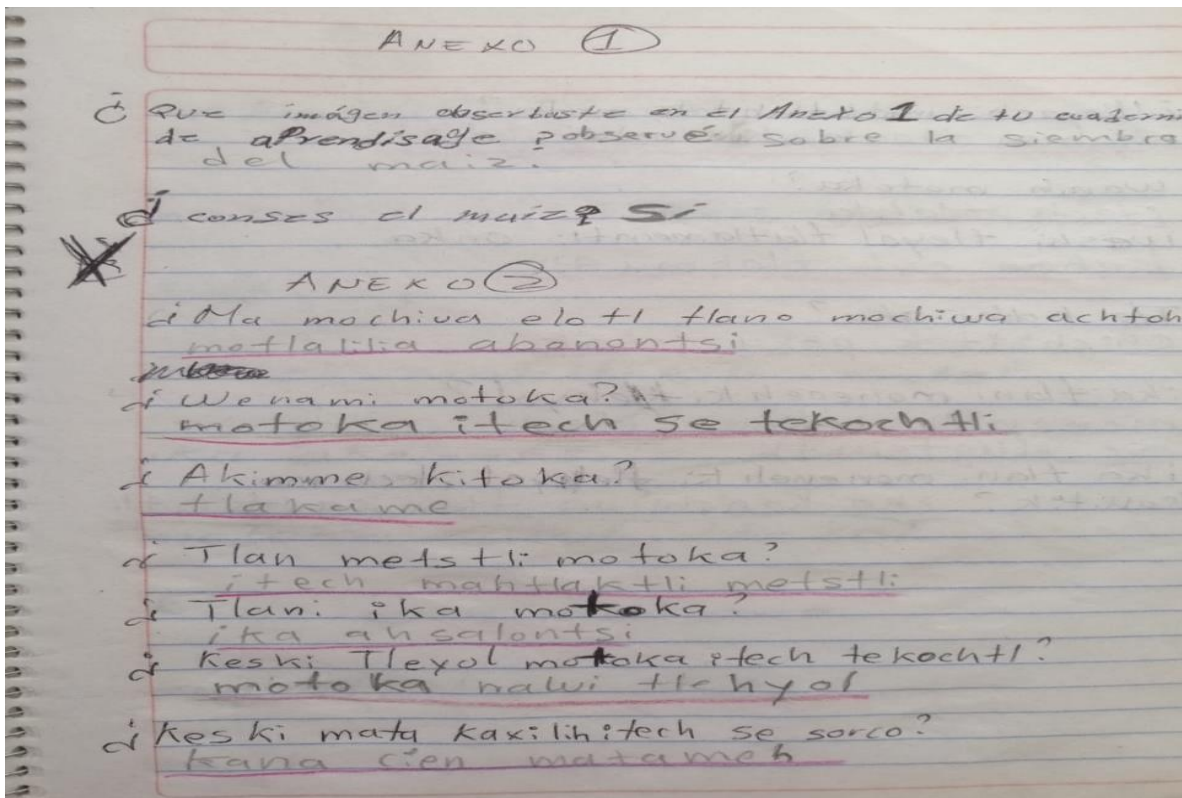 ANEXO 1
¿ Que imágen obserbaste en el Anexo 1 de tu cuaderni
de aprendisage ? observé sobre la siembra
del maiz.
¿ conses el maiz? Si
ANEXO 2
¿ Ma mochiua elotl tlano mochiwa achtoh
motlalilia abanontsi
¿ Wenami motoka?
motoka itech se tekochtli
¿ Akimme kitoka?
tlakame
¿ Tlan metstli motoka?
itech mahtlaktli metstli
¿ Tlani ika motoka?
ika ahsalontsi
¿ Keski Tleyol motoka itech tekochtl?
motoka nawi tlehyol
¿ Keski mata kaxilih itech se sorco?
kana cien matameh